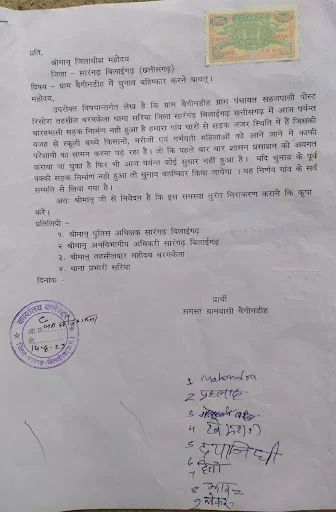 प्रति,
श्रीमान् जिलाधीश महोदय
जिला - सारंगढ़ बिलाईगढ़ (छत्तीसगढ़)
विषय - ग्राम बैगीनडीह में चुनाव बहिष्कार करने बाबत्।
महोदय,
उपरोक्त विषयान्तर्गत लेख है कि ग्राम बैगीनडीह ग्राम पंचायत सहजपाली पोस्ट
रिसोरा तहसील बरमकेला थाना सरिया जिला सारंगढ़ बिलाईगढ़ छत्तीसगढ़ में आज पर्यन्त
बारहमासी सड़क निर्माण नहीं हुआ है हमारा गांव चारों से सड़क जजर स्थिति में हैं जिसकी
वजह से स्कूली बच्चे किसानों, मरीजों एवं गर्भवती महिलाओं को आने जाने में काफी
परेशानी का सामन करना पड़ रहा है। जो कि पहले बार बार शासन प्रशासन को अवगत
कराया जा चुका है फिर भी आज पर्यन्त कोई सुधार नहीं हुआ है। यदि चुनाव के पूर्व
पक्की सड़क निर्माण नहीं हुआ तो चुनाव बहिष्कार किया जायेगा। यह निर्णय गांव के सर्व
सम्मति से लिया गया है।
अतः श्रीमान् जी से निवेदन है कि इस समस्या तुरंत निराकरण कराने कि कृपा
करें।
प्रतिलिपी -
१. श्रीमान् पुलिस अधिक्षक सारंगढ़ बिलाईगढ़
२. श्रीमान् अनविभागीय अधिकरी सारंगढ़ बिलाईगढ़
३. श्रीमान् तहसीलदार महोदय बरमकेला
४. थाना प्रभारी सरिया
दिनांक -
प्रार्थी
समस्त ग्रामवासी बैगीनडीह
14-6-23
1 Mahendra
2 प्रहलाद
3
4
5 दयानिधी
6
7
8
9